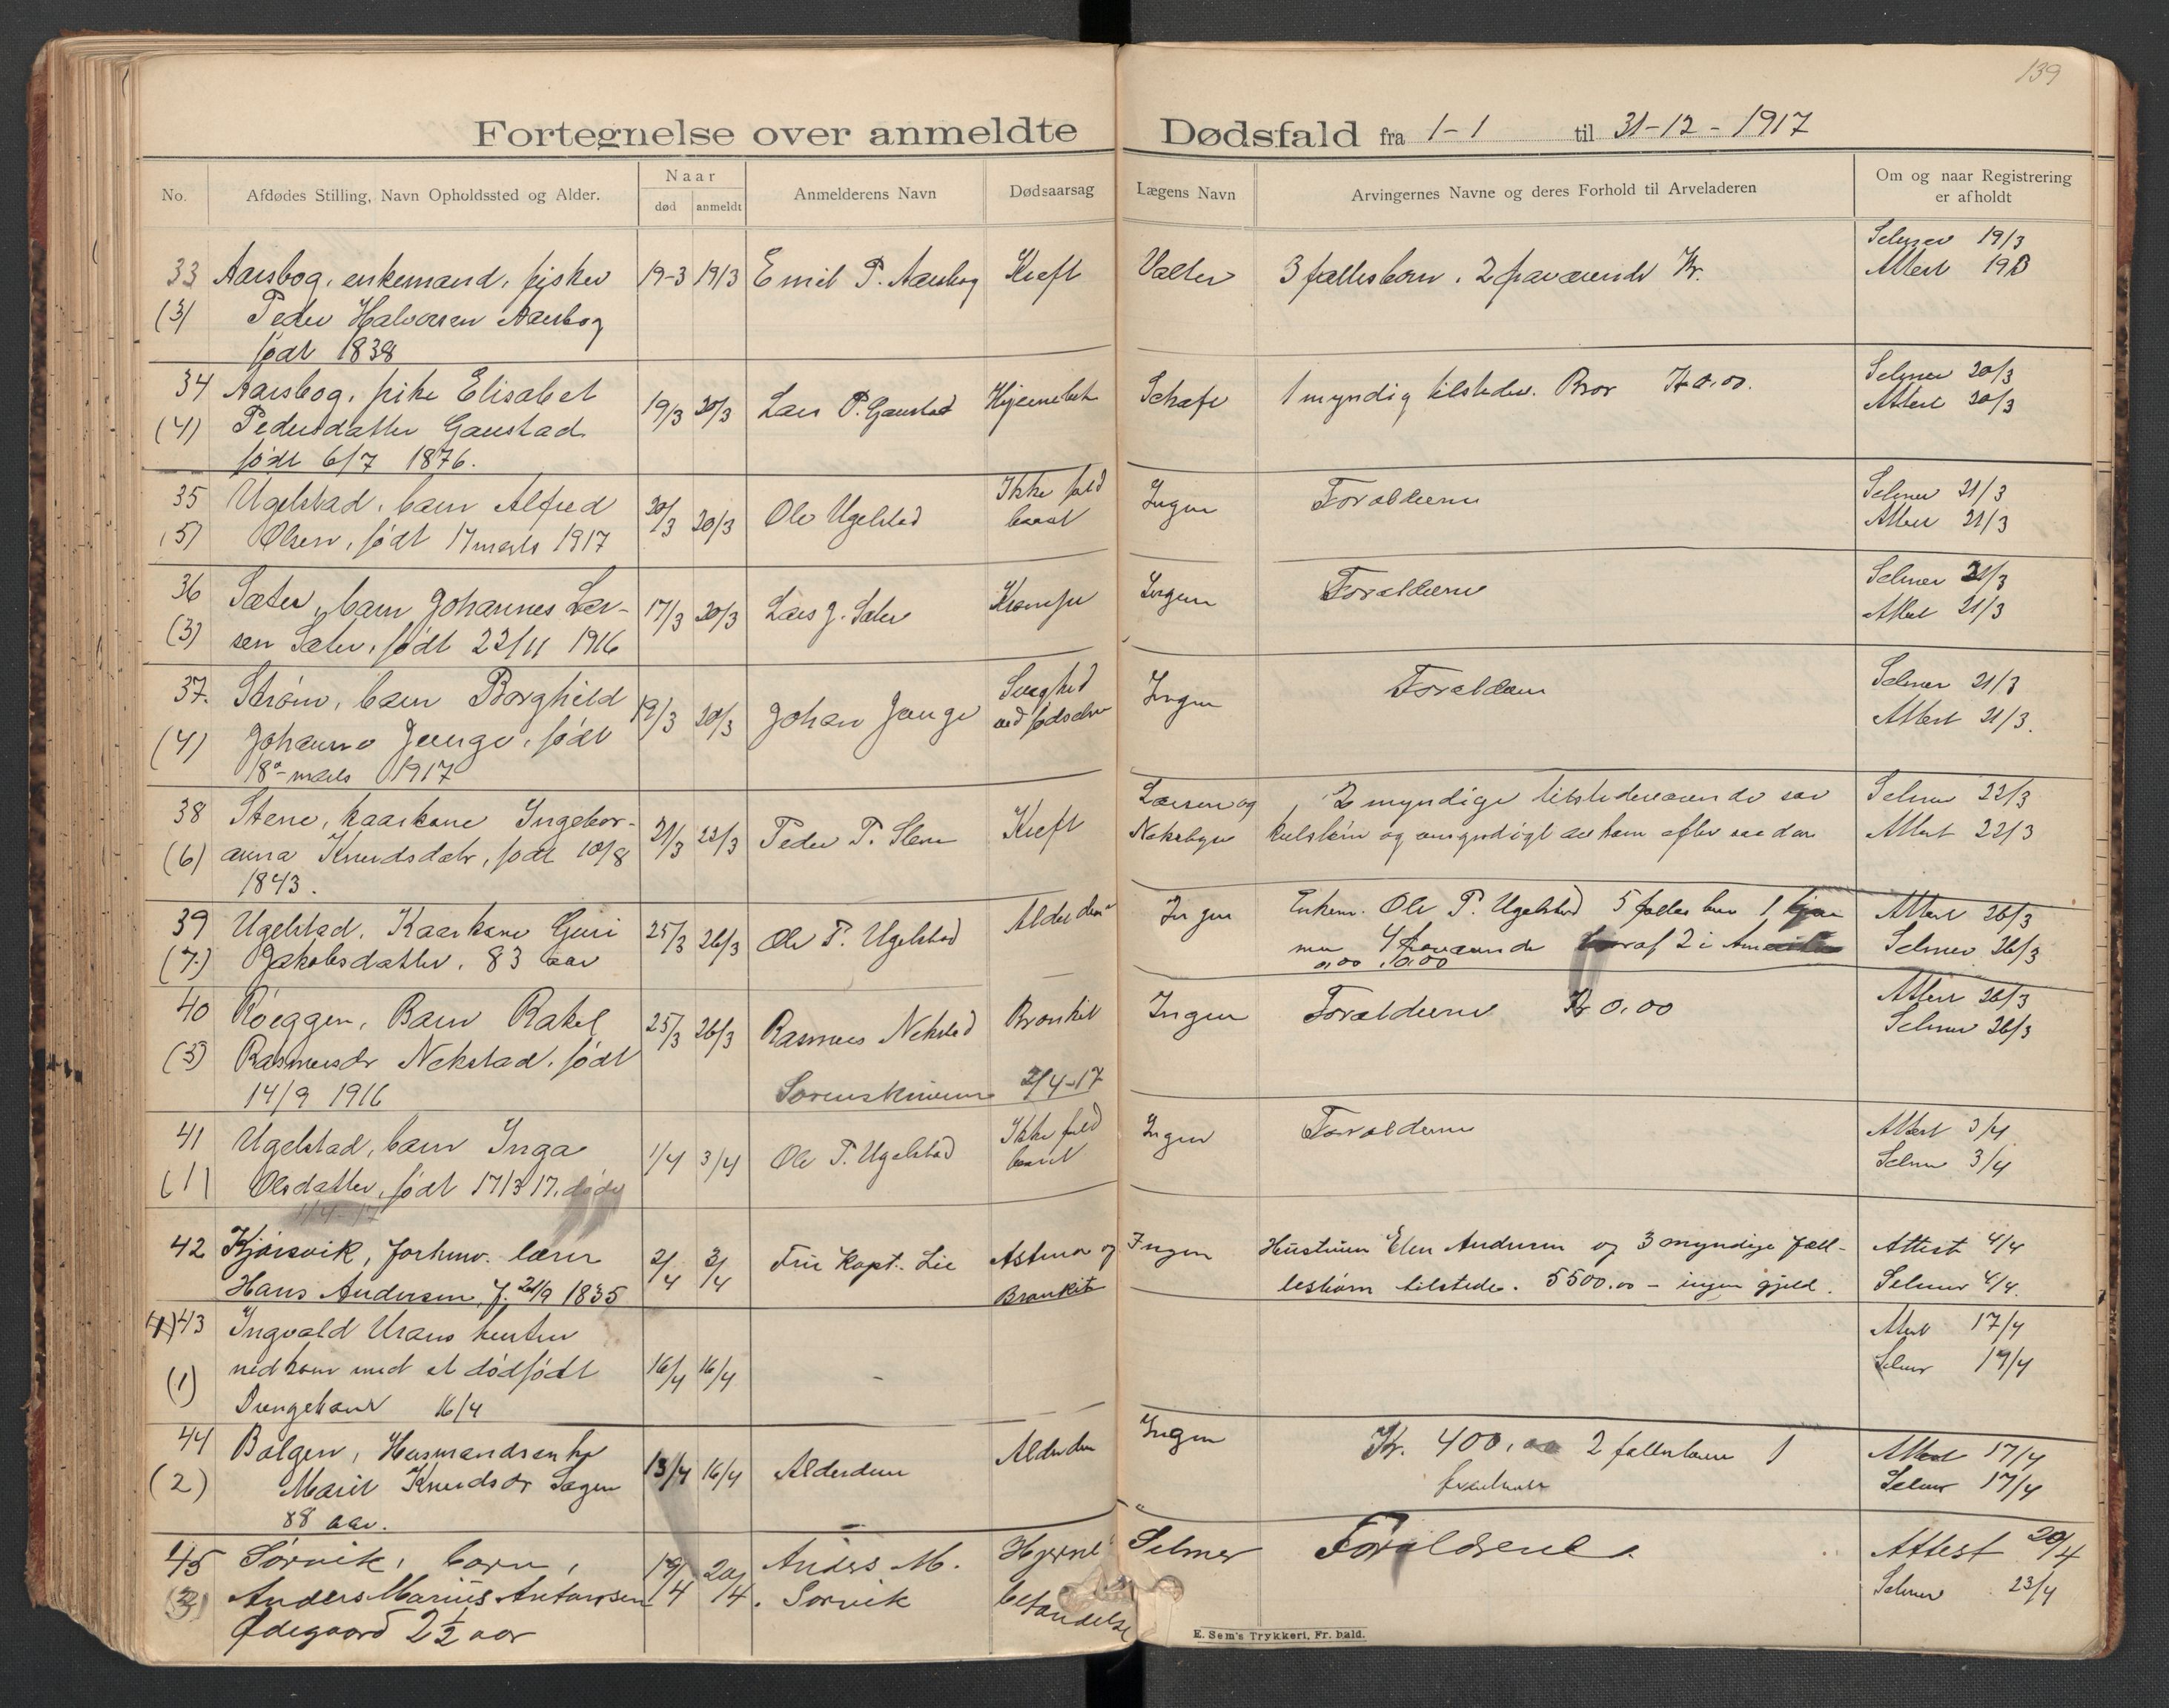 139
Fortegnelse over anmeldte Dødsfald fra 1-1 til 31-12-1917
No.
Afdødes Stilling, Navn Opholdssted og Alder.
Naar
død
anmeldt
Anmelderens Navn
Dødsaarsag
Lægens Navn
Arvingernes Navne og deres Forhold til Arveladeren
Om og naar Registrering
er afholdt
33 Aarsbog, enkemand, fisker 19-3 19/3 Emil P. Aarsbog Kræft Valter 3 fællesbarn. 2 fraværende Kr. Selmer 19/3
(3) Peder Halvorsen Aarsbog Attest 19/3
født 1838
34 Aarsbog, pike Elisabet 19/3 20/3 Lars P. Gaustad Schafe 1 myndig tilstede. Bror Kr 0,00. Selmer 20/3
(4) Pedersdatter Gaustad Attest 20/3
født 6/7 1876.
35 Ugelstad, barn Alfred 20/3 20/3 Ole Ugelstad Ikke fuld Ingen Forældrene Selmer 21/3
(5) Olsen, født 17 marts 1917 baaret Attest 21/3
36 Sæter, barn Johannes Lar- 17/3 20/3 Lars J. Sæter Krampe Ingen Forældrene Selmer 21/3
(3) sen Sæter, født 22/11 1916 Attest 21/3
37. Strøm, barn Borghild 19/3 20/3 Johan Jange Svaghed Ingen Forældrene Selmer 21/3
(4) Johanne Jange, født ved fødselen Attest 21/3.
18de marts 1917
38 Stene, kaarkone Ingebor- 21/3 22/3 Peder P. Stene Kræft Larsen og 2 myndige tilstedeværende Selmer 22/3
(6) anna Knudsdatr, født 10/8 Nekelbye Attest 22/3
1843.
39 Ugelstad, Kaarkone Guri 25/3 26/3 Ole P. Ugelstad Alderdom Ingen Enkem. Ole P. Ugelstad 5 fælles barn 1 Attest 26/3
(7) Jakobsdatter, 83 aar 4 fraværende hvoraf 2 i Amerika Selmer 26/3
0,00 0,00
40 Røeggen, Barn Rakel 25/3 26/3 Rasmus Nekstad Bronkit Ingen Forældrene Kr 0,00 Attest 26/3
(5) Rasmusdr Nekstad, født Selmer 26/3
14/9 1916 Sorenskriveren 2/4-17
41 Ugelstad, barn Inga 1/4 3/4 Ole P. Ugelstad Ikke fuld Ingen Forældrene Attest 3/4
(1) Olsdatter, født 17/3 17, døde baaret Selmer 3/4
1/4-17
42 Kjørsvik, forhenv. lærer 2/4 3/4 Fru Kapt. Lie Astma og Ingen Hustruen Elen Andersen og 3 myndige fæll- Attest 4/4
Hans Andersen, f. 21/9 1835 Bronkit lesbørn tilstede. 5500.00 - ingen gjeld. Selmer 4/4.
(1) 43 Ingvald Urans hustru 16/4 16/4 - Attest 17/4
(1) nedkom med et dødfødt Selmer 17/4
Drengebarn 16/4
44 Bolgen, Husmandsenke 13/4 16/4 Alderdom Alderdom Ingen Kr. 400,00 2 fællesbarn 1 Attest 17/4
(2) Marit Knudsdr Sagen Selmer 17/4
88 aar.
45 Sørvik, barn, 19/4 20/4. Anders M. Hjerne Selmer Forældrene. Attest 20/4
(3) Anders Marius Antonsen Sørvik betændelse Selmer 23/4
Ødegaard 2½ aar
E. Sem's Trykkeri, Fr. hald.